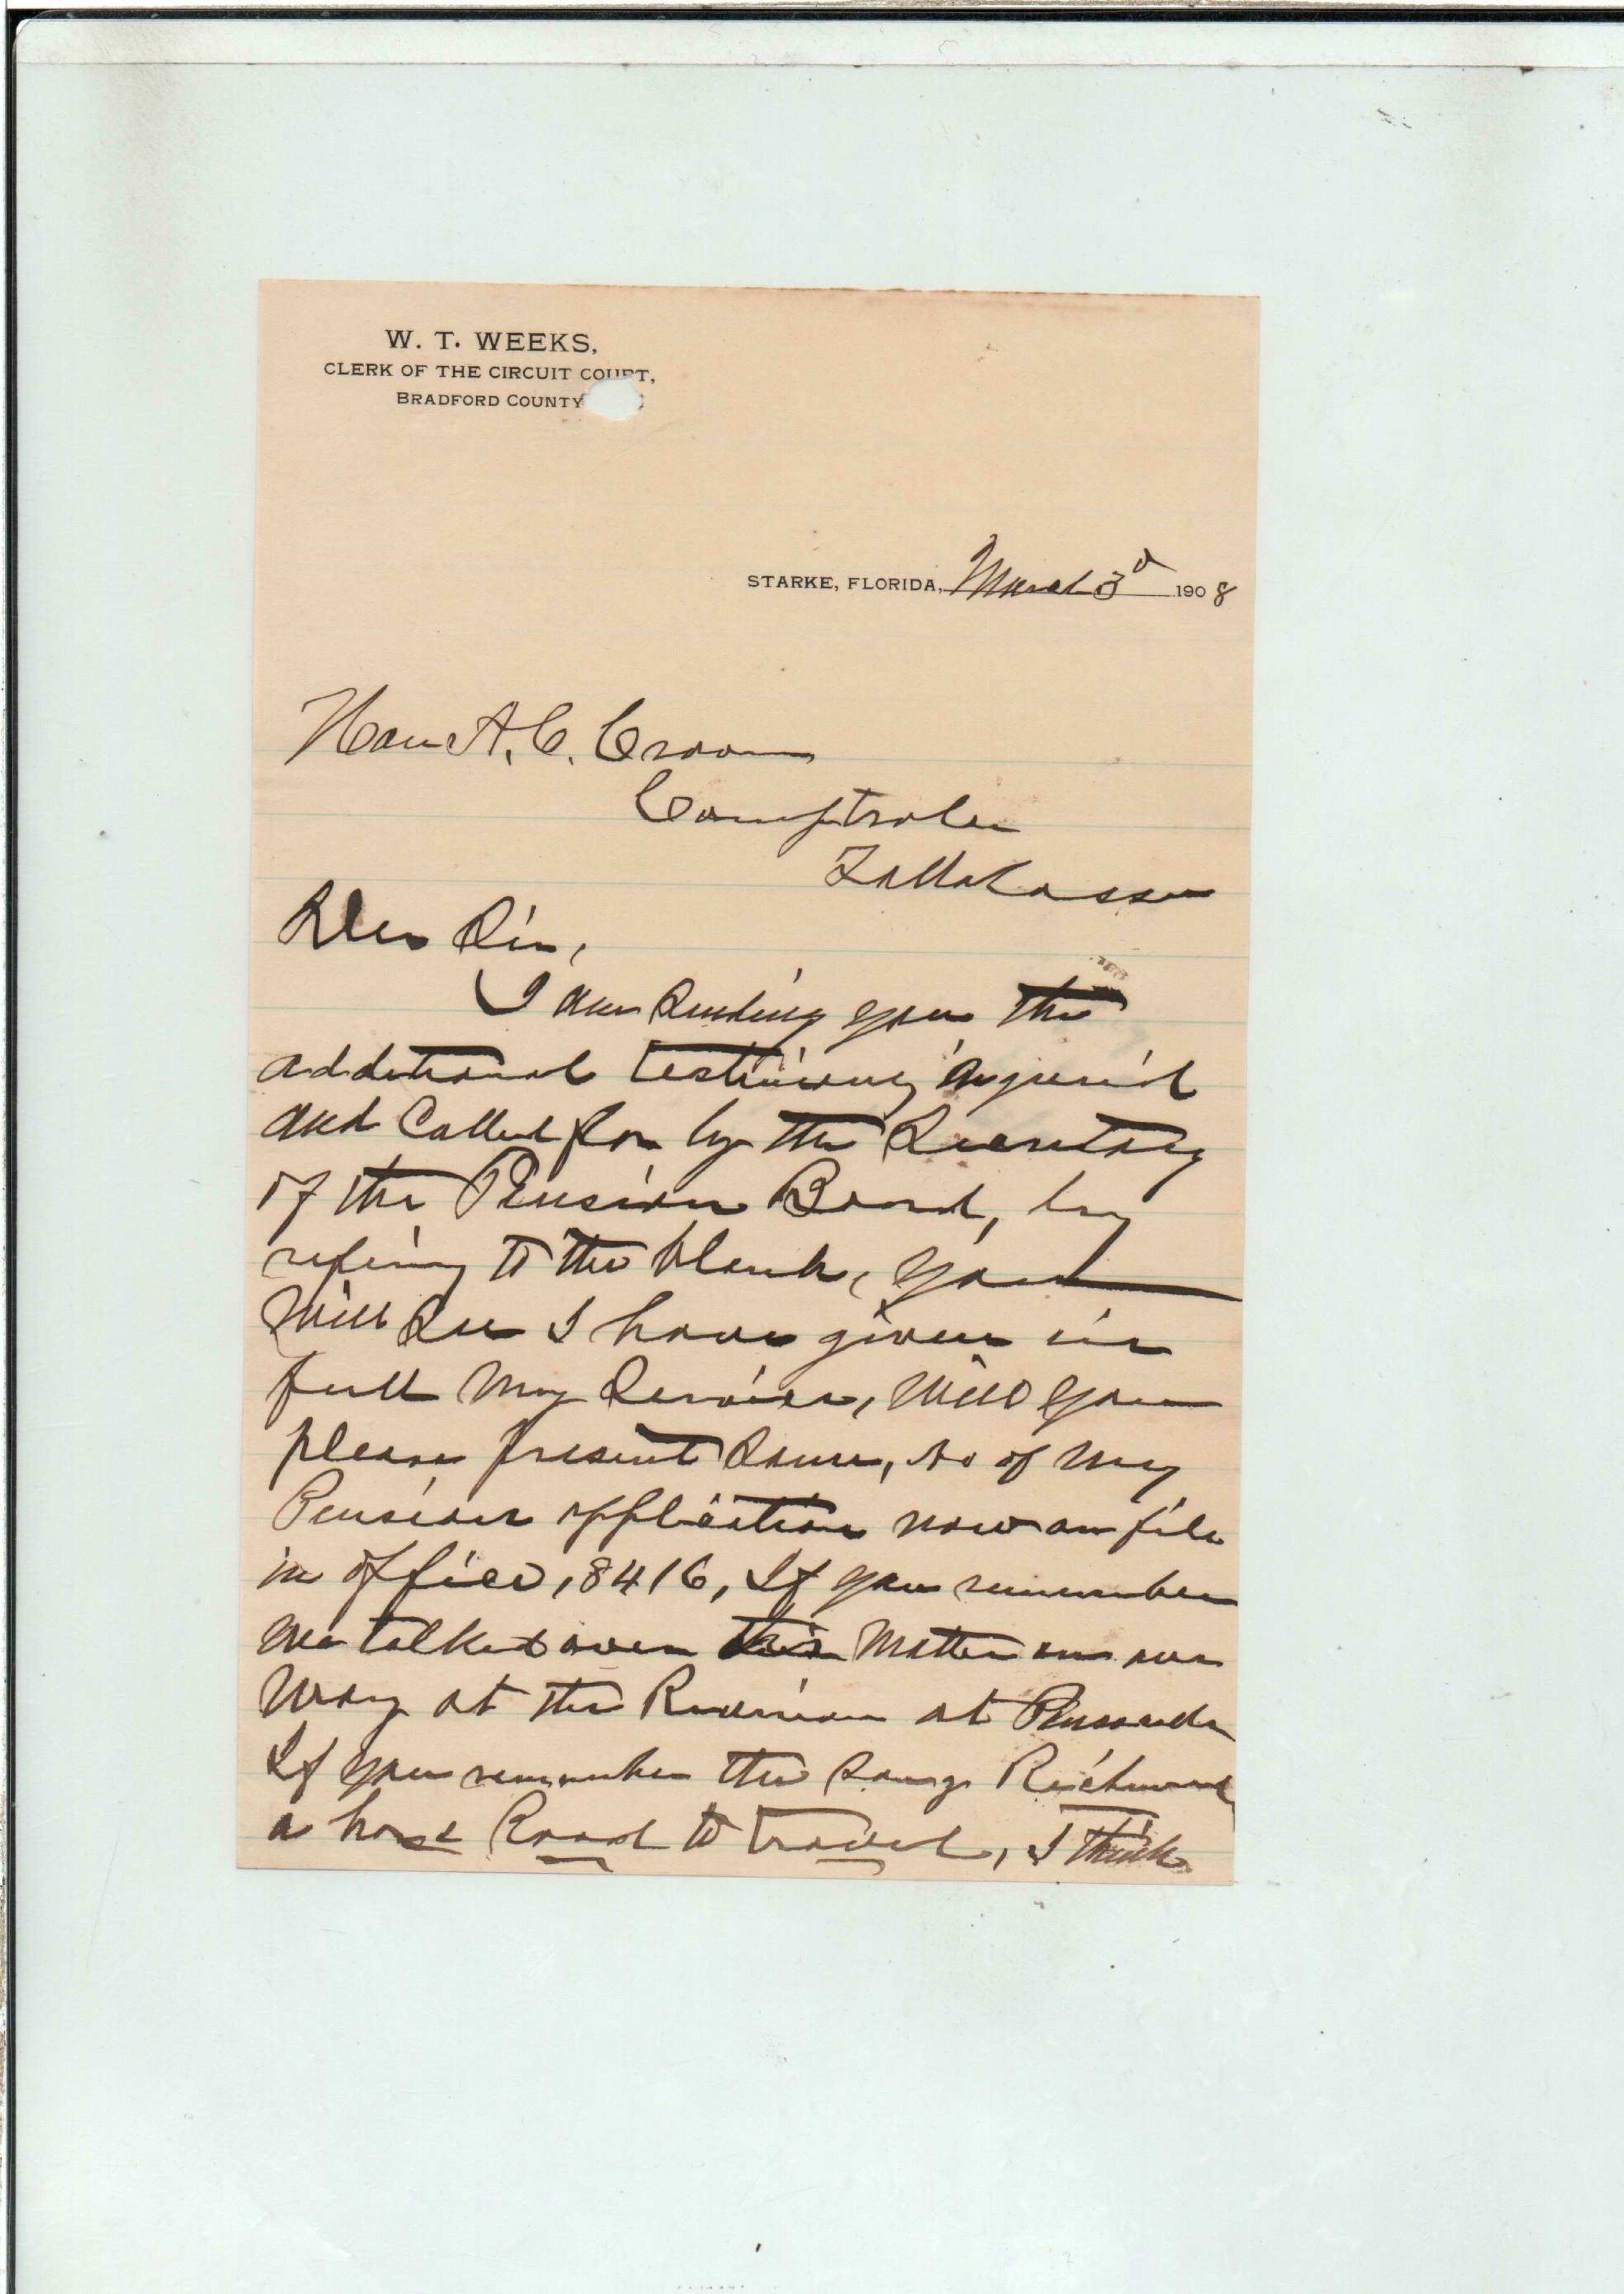 W. T. WEEKS,
CLERK OF THE CIRCUIT COURT,
BRADFORD COUNTY
STARKE, FLORIDA, March 3d 1908
Hon A. C. Croom
Comptroler
Tallahassee
Dear Sir,
I am sending you the
additional testimony
and Called for by the Secretary
of the Pension Board, by
refering to the blank, you
Will See I have given in
full My Service, Will you
please present Same, No of My
Pension application now on file
in office, 8416, If you remember
we talked over this Matter on our
Way at the Reunion at Pensacola
If you remember the Song Richmond
a hard Road to travel, I think